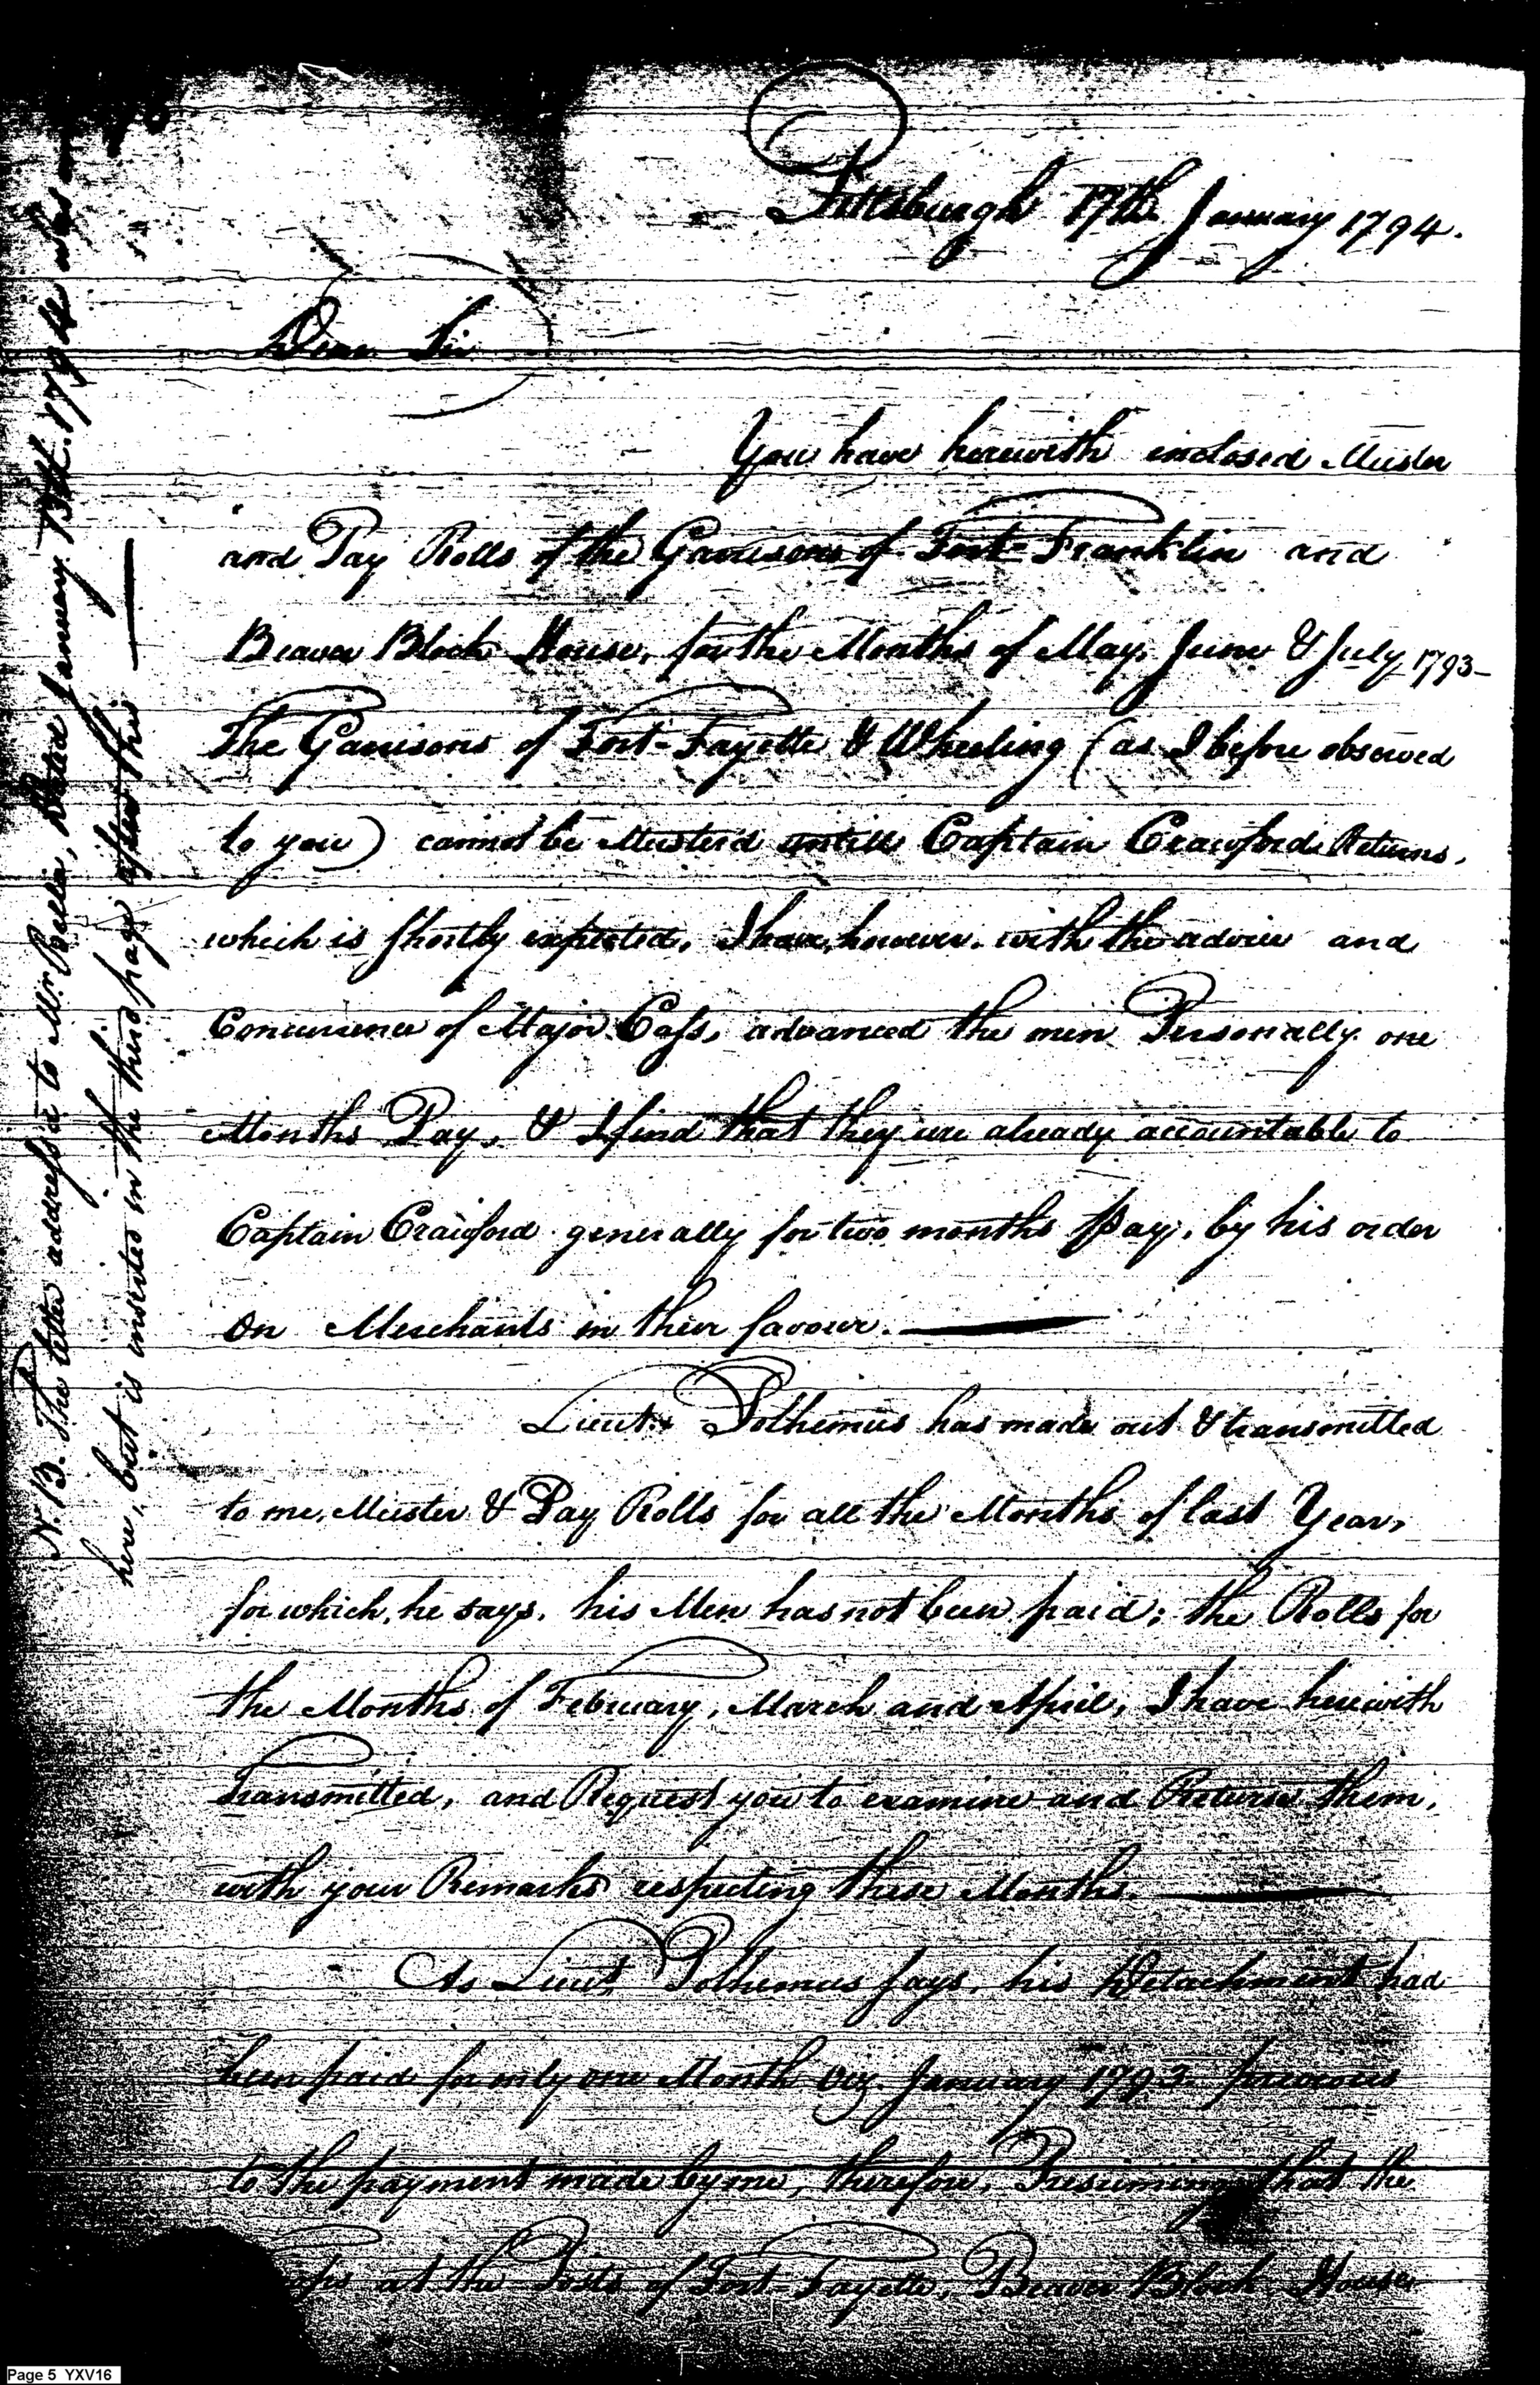 Pittsburgh 17th January 1794.
Dear Sir
You have herewith inclosed Muster
and Pay Rolls of the Garrisons of Fort-Franklin and
Beaver Block House, for the Months of May, June & July 1793-
The Garrisons of Fort-Fayette & Wheeling (as I before observed
to you) cannot be Musterd untill Captain Crawford Returns,
which is shortly expected, I have, however, with the advice and
Concurrence of Major Cass, advanced the men Personally one
Months Pay, & I find that they are already accountable to
Captain Crawford generally for two months Pay, by his order
on Merchants in their favour.
Lieut. Polhemus has made out & transmitted
to me, Muster & Pay Rolls for all the Months of last Year,
for which, he says, his Men has not been paid; the Rolls for
the Months of February, March and April, I have herewith
Transmitted, and Request you to examine and Return them,
with your Remarks respecting these Months.
As Lieut. Polhemus says, his Detachment had
been paid for only one Month Viz. January 1793 previous
to the payment made by me, therefore, Presuming that the
at the Posts of Fort-Fayette, Beaver Block House
N.B. The letter address'd to Mr. Dated January 13th. 1794 was
here, but is inserted in the third page after this
Page 5 YXV16